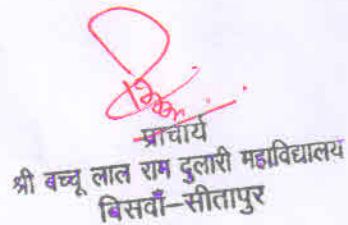 प्राचार्य
श्री बच्चू लाल राम दुलारी महाविद्यालय
बिसवाँ–सीतापुर